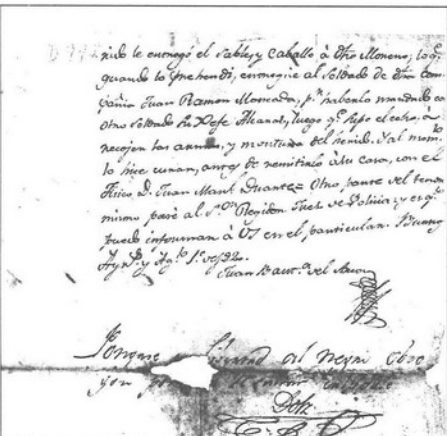 rido le entregó el Sable, y Caballo à dho Moreno; lo q.
quando lo prehendi, entregue al Soldado de dha Com
pañia Juan Ramon Moscada, p.r haberlo mandado con
otro Soldado su Xefe Alcaraz, luego q.e supo el echo, a
recojer las armas, y montura del herido. Y al mom.to
lo hice curar, antes de remitirlo à su casa, con el
Fisico D. Juan Man.l Duarte= Otro parte del tenor
mismo pasé al S.or Regidor Juez de Policia; y es q.to
puedo informar à VS en el particular. Buenos
Ay.s y Ag.to 1.º de 1820.
Juan Baut.a del Arco
Ponga libertad al Negro